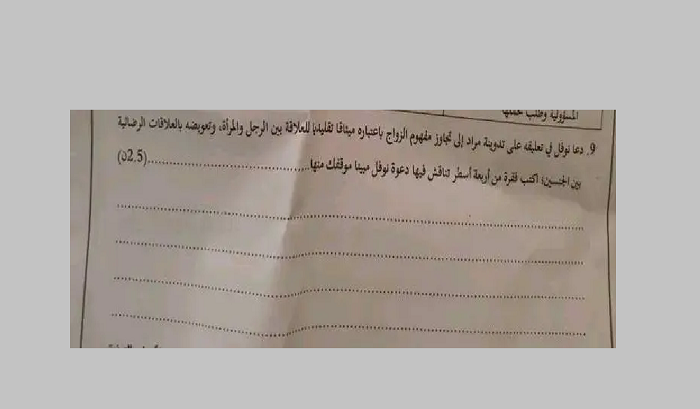 المسؤولية وطلب
9. دعا نوفل في تعليقه على تدوينة مراد إلى تجاوز مفهوم الزواج باعتباره ميثاقا تقليديا للعلاقة بين الرجل والمرأة، وتعويضه بالعلاقات الرضائية
بين الجنسين، اكتب فقرة من أربعة أسطر تناقش فيها دعوة نوفل مبينا موقفك منها..............................(2.5ن)